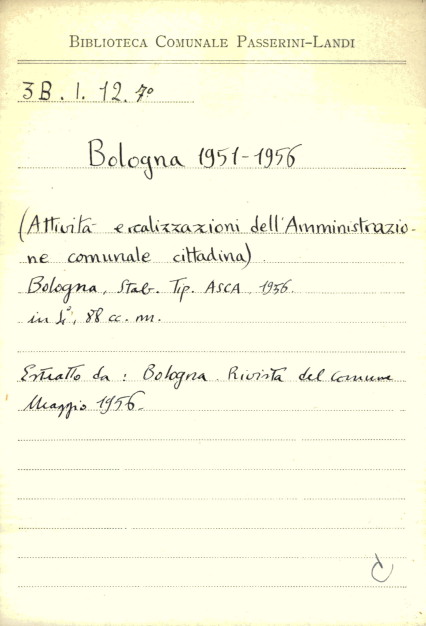 BIBLIOTECA COMUNALE PASSERINI-LANDI
3B. I. 12. 7º
Bologna 1951-1956
(Attività e realizzazioni dell'Amministrazio-
ne comunale cittadina).
Bologna, Stab. Tip. ASCA 1956.
in 4º, 88 cc. nn.
Estratto da: Bologna. Rivista del comune
Maggio 1956.